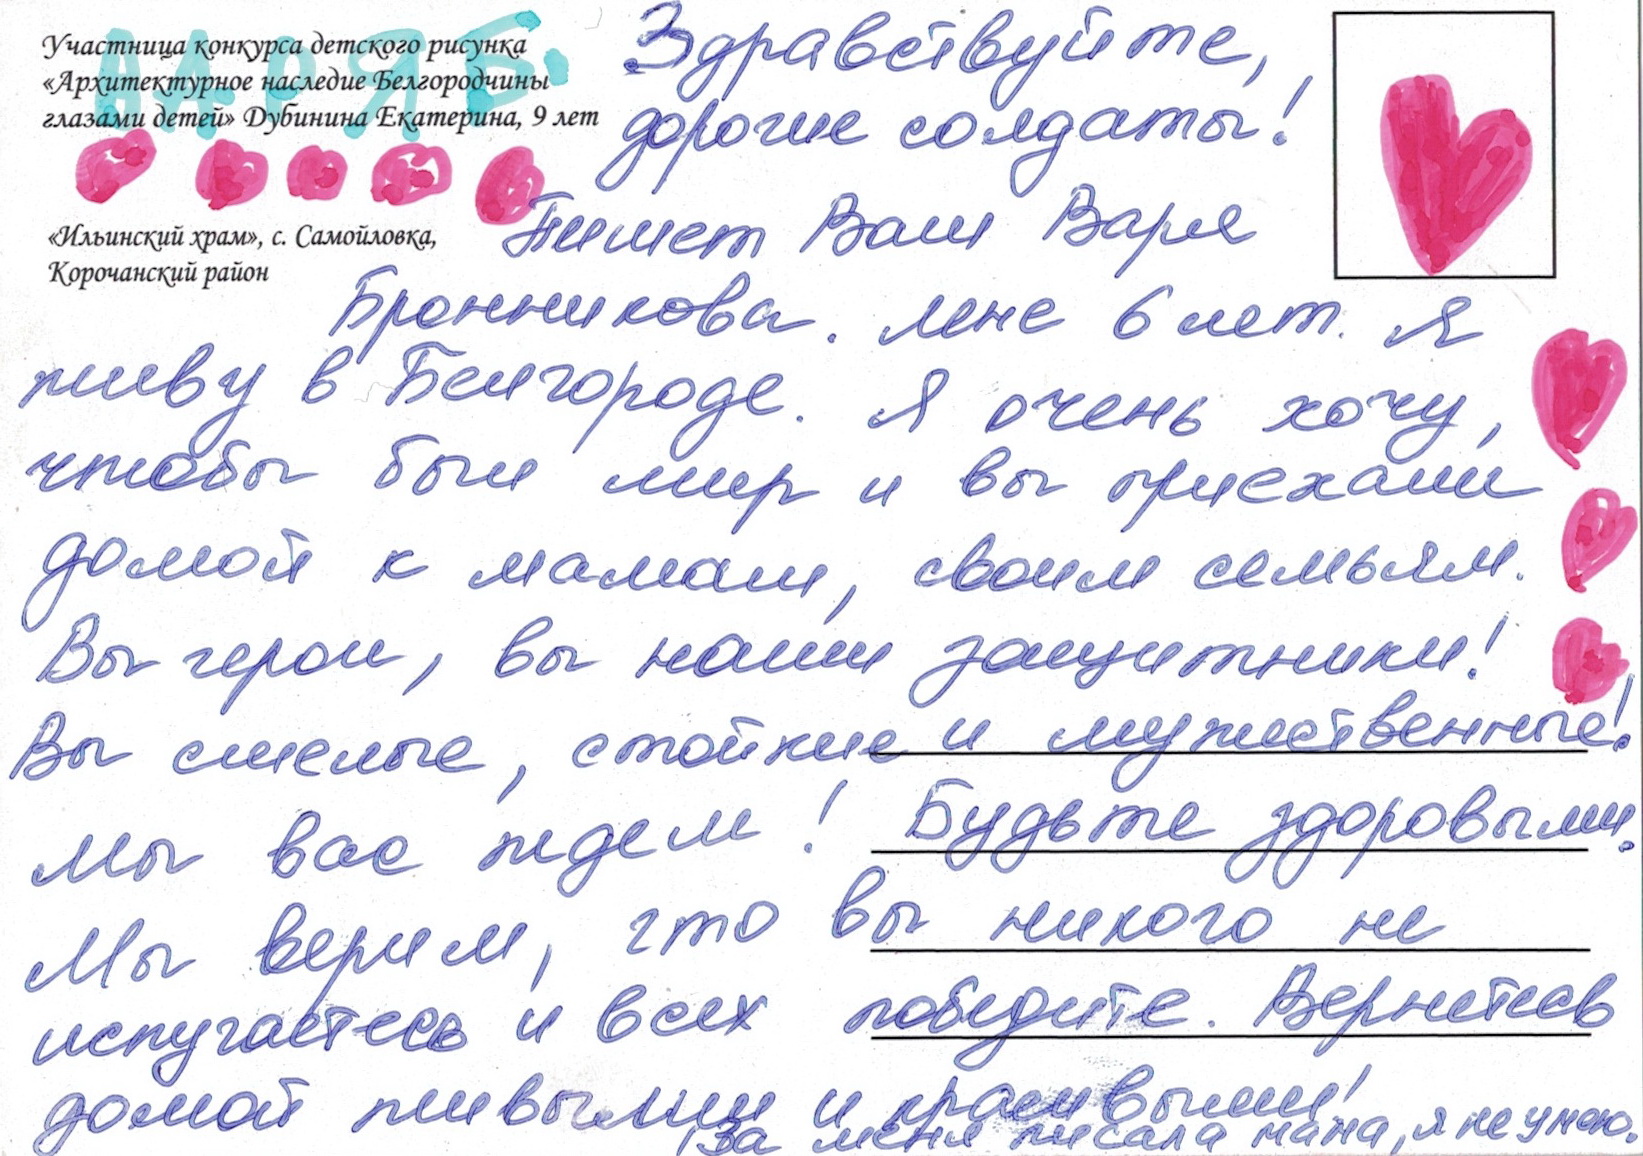 Участница конкурса детского рисунка
«Архитектурное наследие Белгородчины
глазами детей» Дубинина Екатерина, 9 лет
ВАРЯ Б.
«Ильинский храм», с. Самойловка,
Корочанский район
Здравствуйте,
дорогие солдаты!
Пишет Вам Варя
Бронникова. Мне 6 лет. Я
живу в Белгороде. Я очень хочу,
чтобы был мир и вы приехали
домой к мамам, своим семьям.
Вы герои, вы наши защитники!
Вы смелые, стойкие и мужественные!
Мы вас ждем! Будьте здоровыми.
Мы верим, что вы никого не
испугаетесь и всех победите. Вернетесь
домой живыми и красивыми!
За меня писала мама, я не умею.